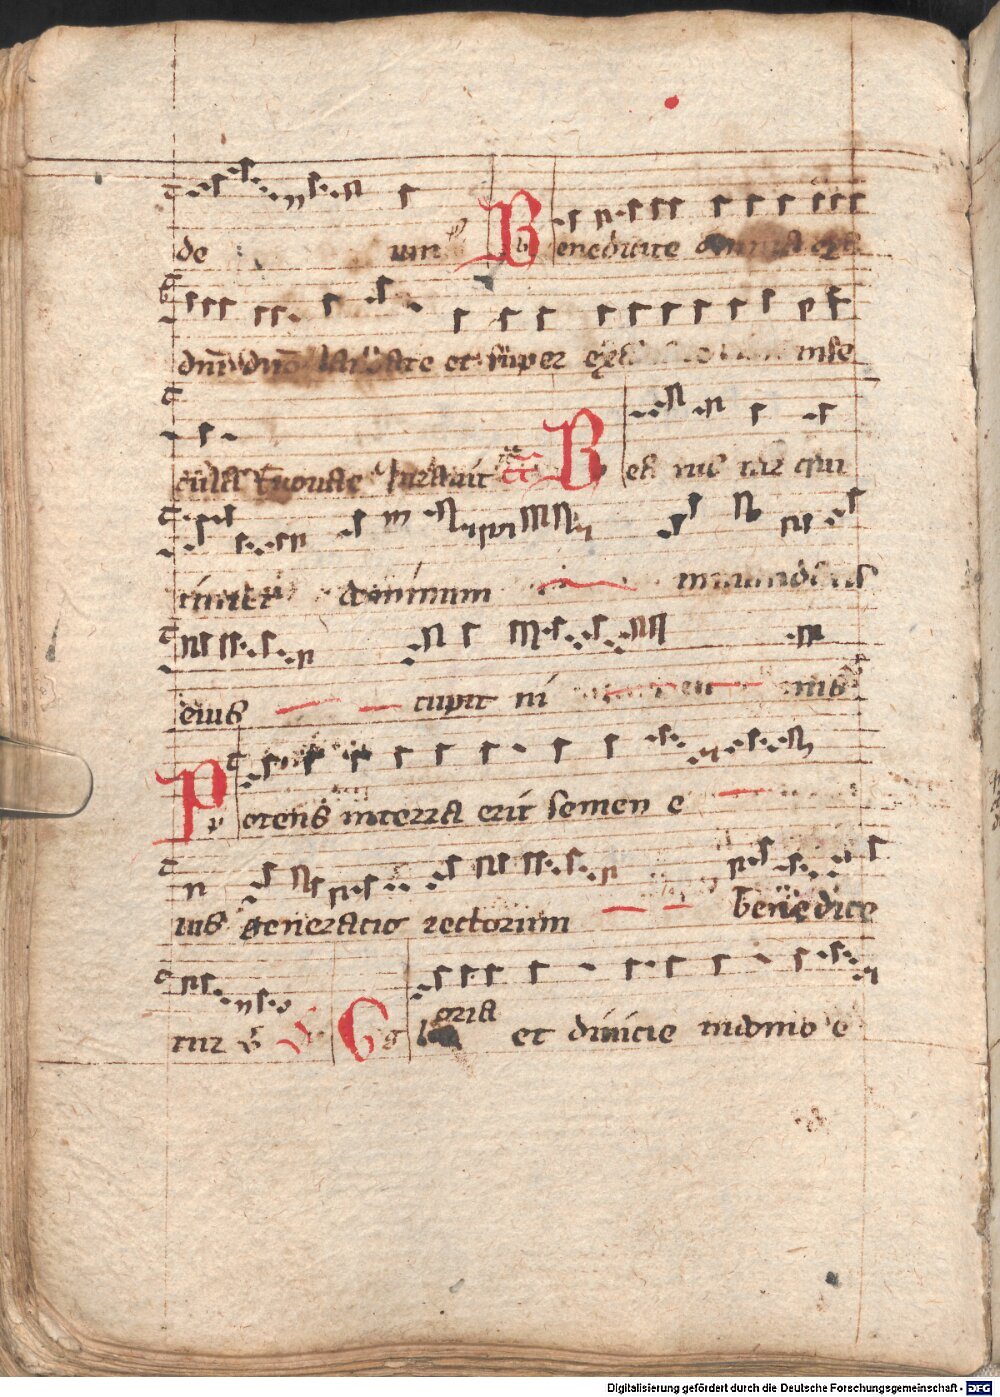 de um Benedicite omnia opa
dnī dno laudate et super exa in se
cula Euouae Jurauit Bea tus uir qui
timet dominum in mandatis
eius cupit ni mis
Potens in terra erit semen e
ius generacio rectorum benedice
tur Gloria et diuicie in domo e
Digitalisierung gefördert durch die Deutsche Forschungsgemeinschaft - DFG